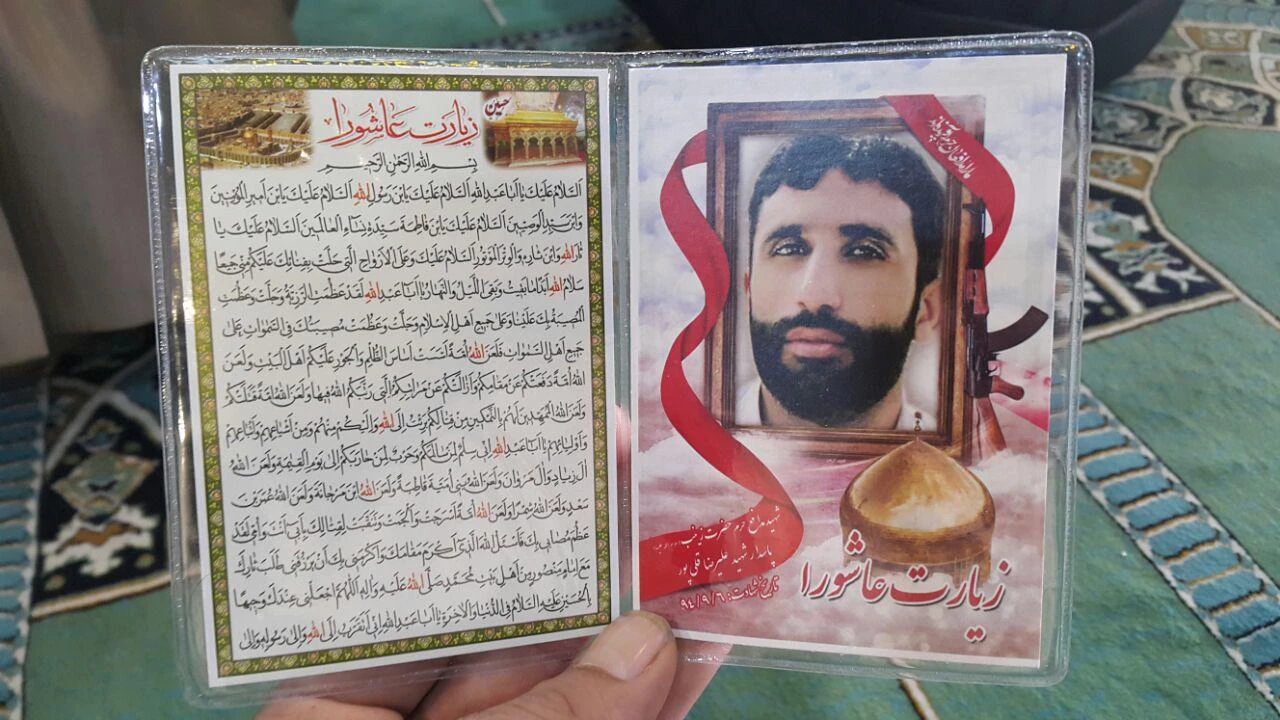 زیارت عاشورا
حسین
بِسْمِ اللهِ الرَّحْمٰنِ الرَّحیمِ
اَلسَّلامُ عَلَیْكَ یٰا اَبٰا عَبْدِ اللهِ اَلسَّلامُ عَلَیْكَ یَابْنَ رَسُولِ اللهِ اَلسَّلامُ عَلَیْكَ یَابْنَ اَمیرِ الْمُؤْمِنینَ
وَابْنَ سَیِّدِ الْوَصِیّینَ اَلسَّلامُ عَلَیْكَ یَابْنَ فٰاطِمَةَ سَیِّدَةِ نِسٰاءِ الْعٰالَمینَ اَلسَّلامُ عَلَیْكَ یٰا
ثٰارَ اللهِ وَابْنَ ثٰارِهِ وَالْوِتْرَ الْمَوْتُورَ اَلسَّلامُ عَلَیْكَ وَعَلَی الْاَرْوٰاحِ الَّتی حَلَّتْ بِفِنٰائِكَ عَلَیْكُمْ مِنّی جَمیعًا
سَلامُ اللهِ اَبَدًا مٰا بَقیتُ وَبَقِیَ اللَّیْلُ وَالنَّهٰارُ یٰا اَبٰا عَبْدِ اللهِ لَقَدْ عَظُمَتِ الرَّزِیَّةُ وَجَلَّتْ وَعَظُمَتِ
الْمُصیبَةُ بِكَ عَلَیْنٰا وَعَلیٰ جَمیعِ اَهْلِ الْاِسْلامِ وَجَلَّتْ وَعَظُمَتْ مُصیبَتُكَ فِی السَّمٰوٰاتِ عَلیٰ
جَمیعِ اَهْلِ السَّمٰوٰاتِ فَلَعَنَ اللهُ اُمَّةً اَسَّسَتْ اَسٰاسَ الظُّلْمِ وَالْجَوْرِ عَلَیْكُمْ اَهْلَ الْبَیْتِ وَلَعَنَ
اللهُ اُمَّةً دَفَعَتْكُمْ عَنْ مَقٰامِكُمْ وَاَزٰالَتْكُمْ عَنْ مَرٰاتِبِكُمُ الَّتی رَتَّبَكُمُ اللهُ فیهٰا وَلَعَنَ اللهُ اُمَّةً قَتَلَتْكُمْ
وَلَعَنَ اللهُ الْمُمَهِّدینَ لَهُمْ بِالتَّمْكینِ مِنْ قِتٰالِكُمْ بَرِئْتُ اِلَی اللهِ وَاِلَیْكُمْ مِنْهُمْ وَمِنْ اَشْیٰاعِهِمْ وَاَتْبٰاعِهِمْ
وَاَوْلِیٰائِهِمْ یٰا اَبٰا عَبْدِ اللهِ اِنّی سِلْمٌ لِمَنْ سٰالَمَكُمْ وَحَرْبٌ لِمَنْ حٰارَبَكُمْ اِلیٰ یَوْمِ الْقِیٰمَةِ وَلَعَنَ اللهُ
آلَ زِیٰادٍ وَآلَ مَرْوٰانَ وَلَعَنَ اللهُ بَنی اُمَیَّةَ قٰاطِبَةً وَلَعَنَ اللهُ ابْنَ مَرْجٰانَةَ وَلَعَنَ اللهُ عُمَرَ بْنَ
سَعْدٍ وَلَعَنَ اللهُ شِمْرًا وَلَعَنَ اللهُ اُمَّةً اَسْرَجَتْ وَاَلْجَمَتْ وَتَنَقَّبَتْ لِقِتٰالِكَ بِاَبی اَنْتَ وَاُمّی لَقَدْ
عَظُمَ مُصٰابی بِكَ فَاَسْئَلُ اللهَ الَّذی اَكْرَمَ مَقٰامَكَ وَاَكْرَمَنی بِكَ اَنْ یَرْزُقَنی طَلَبَ ثٰارِكَ
مَعَ اِمٰامٍ مَنْصُورٍ مِنْ اَهْلِ بَیْتِ مُحَمَّدٍ صَلَّی اللهُ عَلَیْهِ وَآلِهِ اَللّٰهُمَّ اجْعَلْنی عِنْدَكَ وَجیهًا
بِالْحُسَیْنِ عَلَیْهِ السَّلامُ فِی الدُّنْیٰا وَالْاٰخِرَةِ یٰا اَبٰا عَبْدِ اللهِ اِنّی اَتَقَرَّبُ اِلَی اللهِ وَاِلیٰ رَسُولِهِ وَاِلیٰ
شهید مدافع حرم حضرت زینب
پاسدار شهید علیرضا قلی پور
تاریخ شهادت: ۹۴/۹/۶
زیارت عاشورا